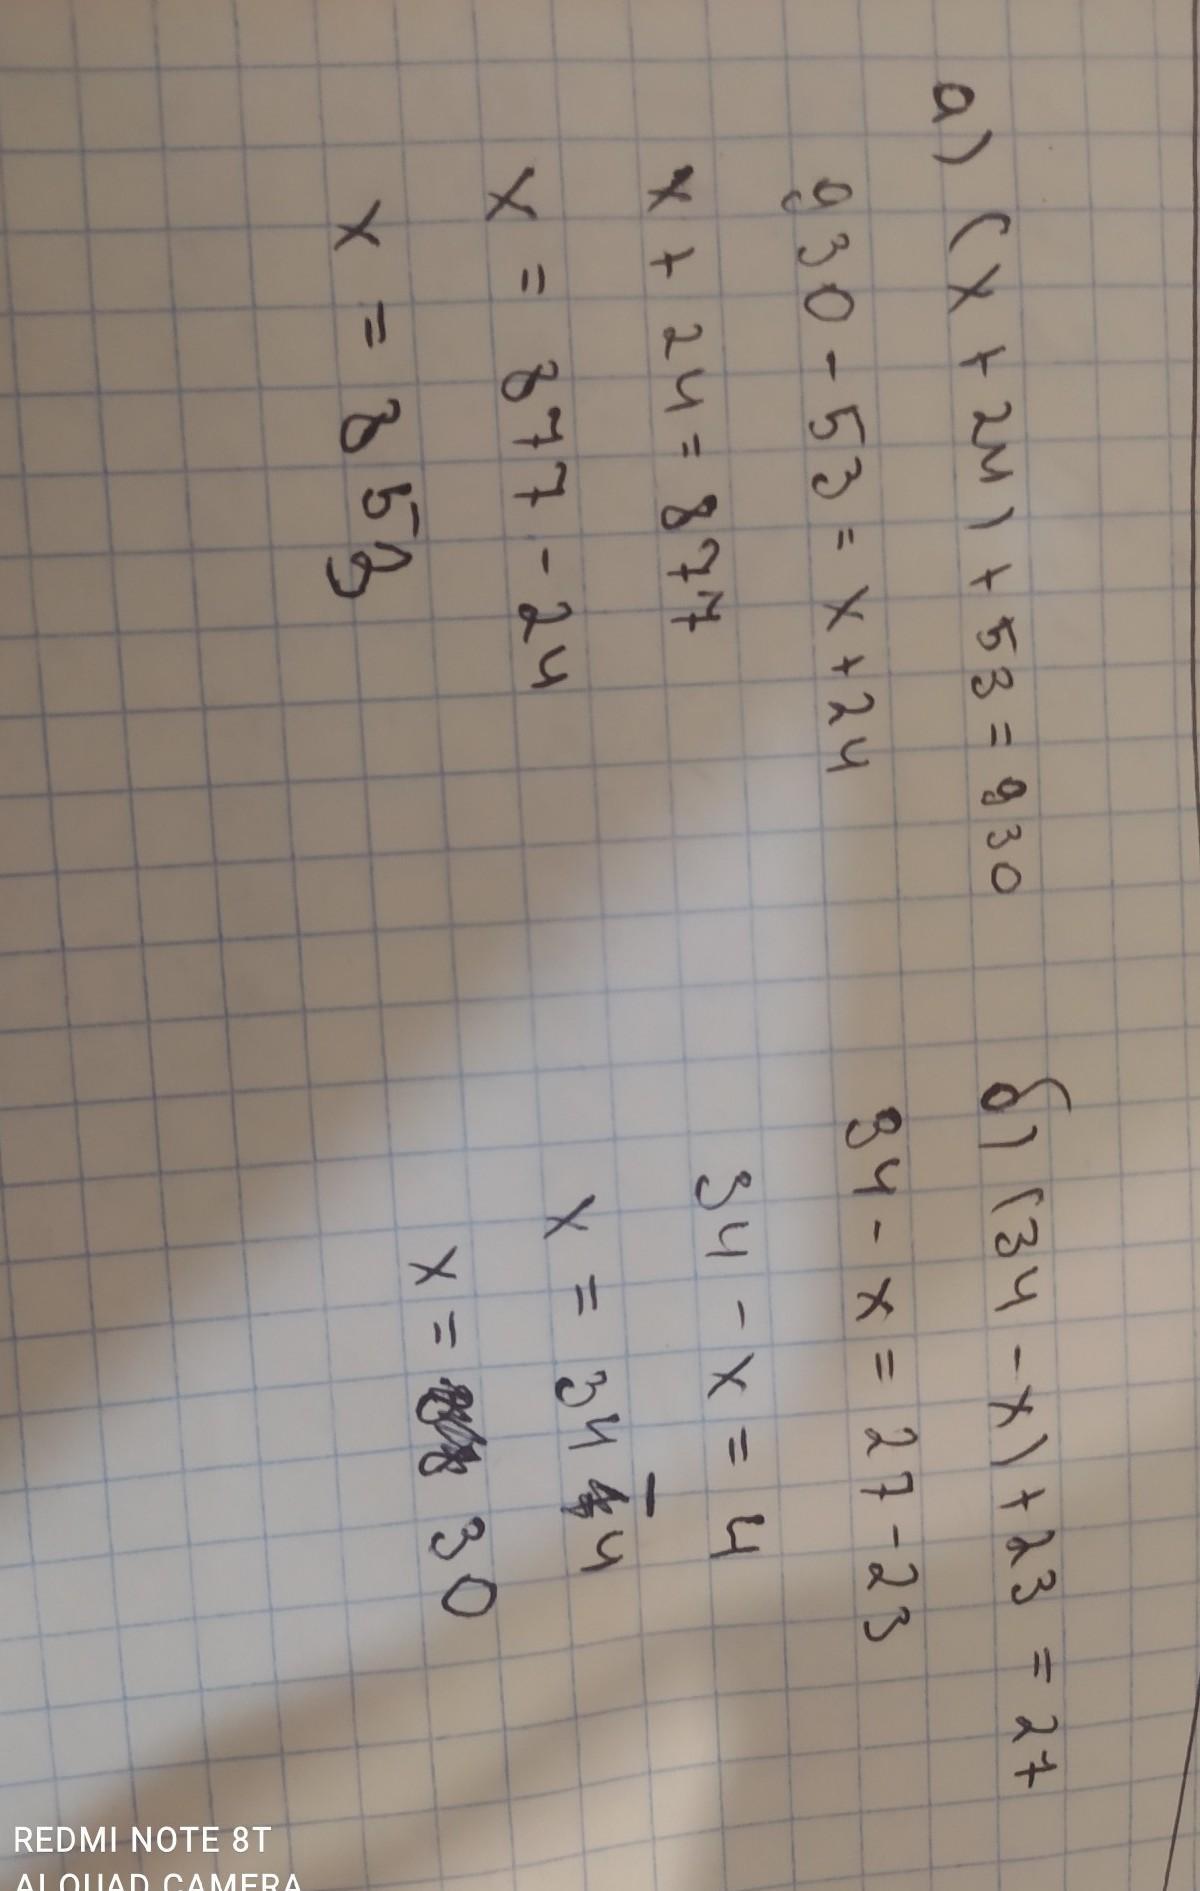 а) (x + 24) + 53 = 930
930 - 53 = x + 24
x + 24 = 877
x = 877 - 24
x = 853
б) (34 - x) + 23 = 27
34 - x = 27 - 23
34 - x = 4
x = 34 - 4
x = 30
REDMI NOTE 8T
AI QUAD CAMERA